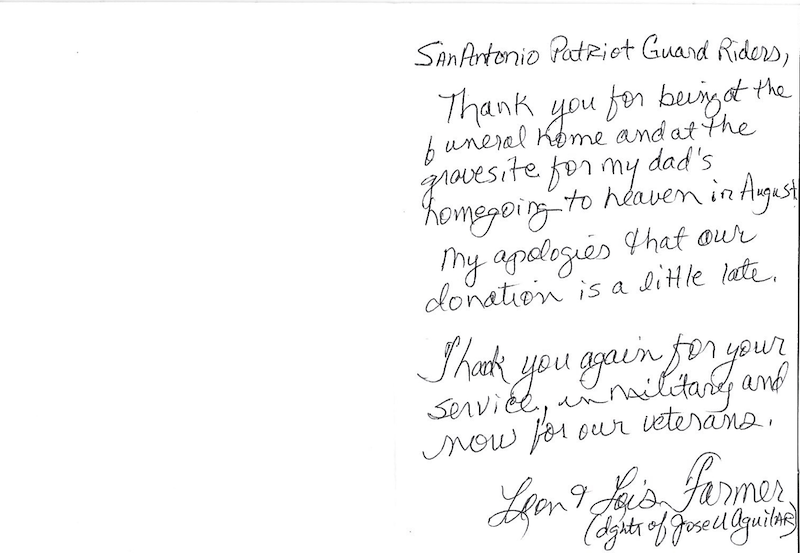 San Antonio Patriot Guard Riders,
Thank you for being at the
funeral home and at the
gravesite for my dad's
homegoing to heaven in August
My apologies that our
donation is a little late.
Thank you again for your
service, in military and
now for our veterans.
Leon & Lois Farmer
(dghtr of Jose U Aguilar)